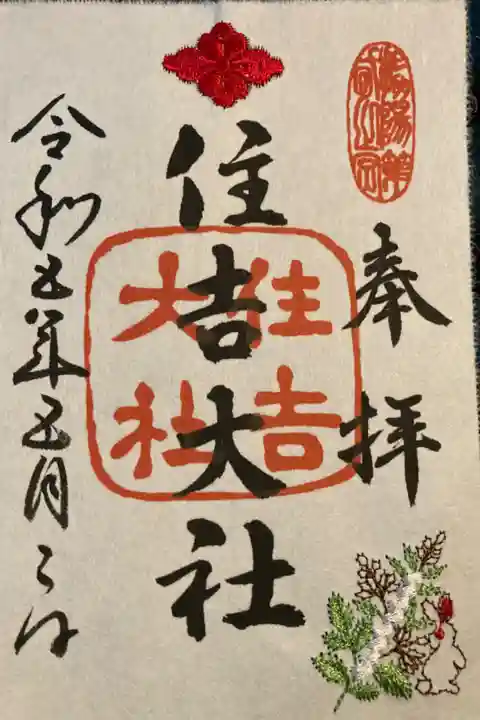 奉拝
住吉大社
住吉
大社
令和五年五月二日